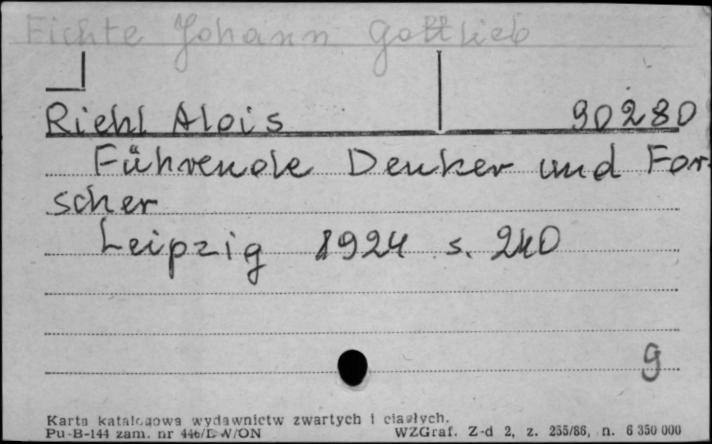 Fichte Johann Gottlieb
Riehl Alois 90280
Führende Denker und For-
scher
Leipzig 1924 s. 240
g
Karta katalogowa wydawnictw zwartych i ciągłych.
Pu-B-144 zam. nr 446/D W/ON WZGraf. Z-d 2, z. 255/86, n. 6 350 000